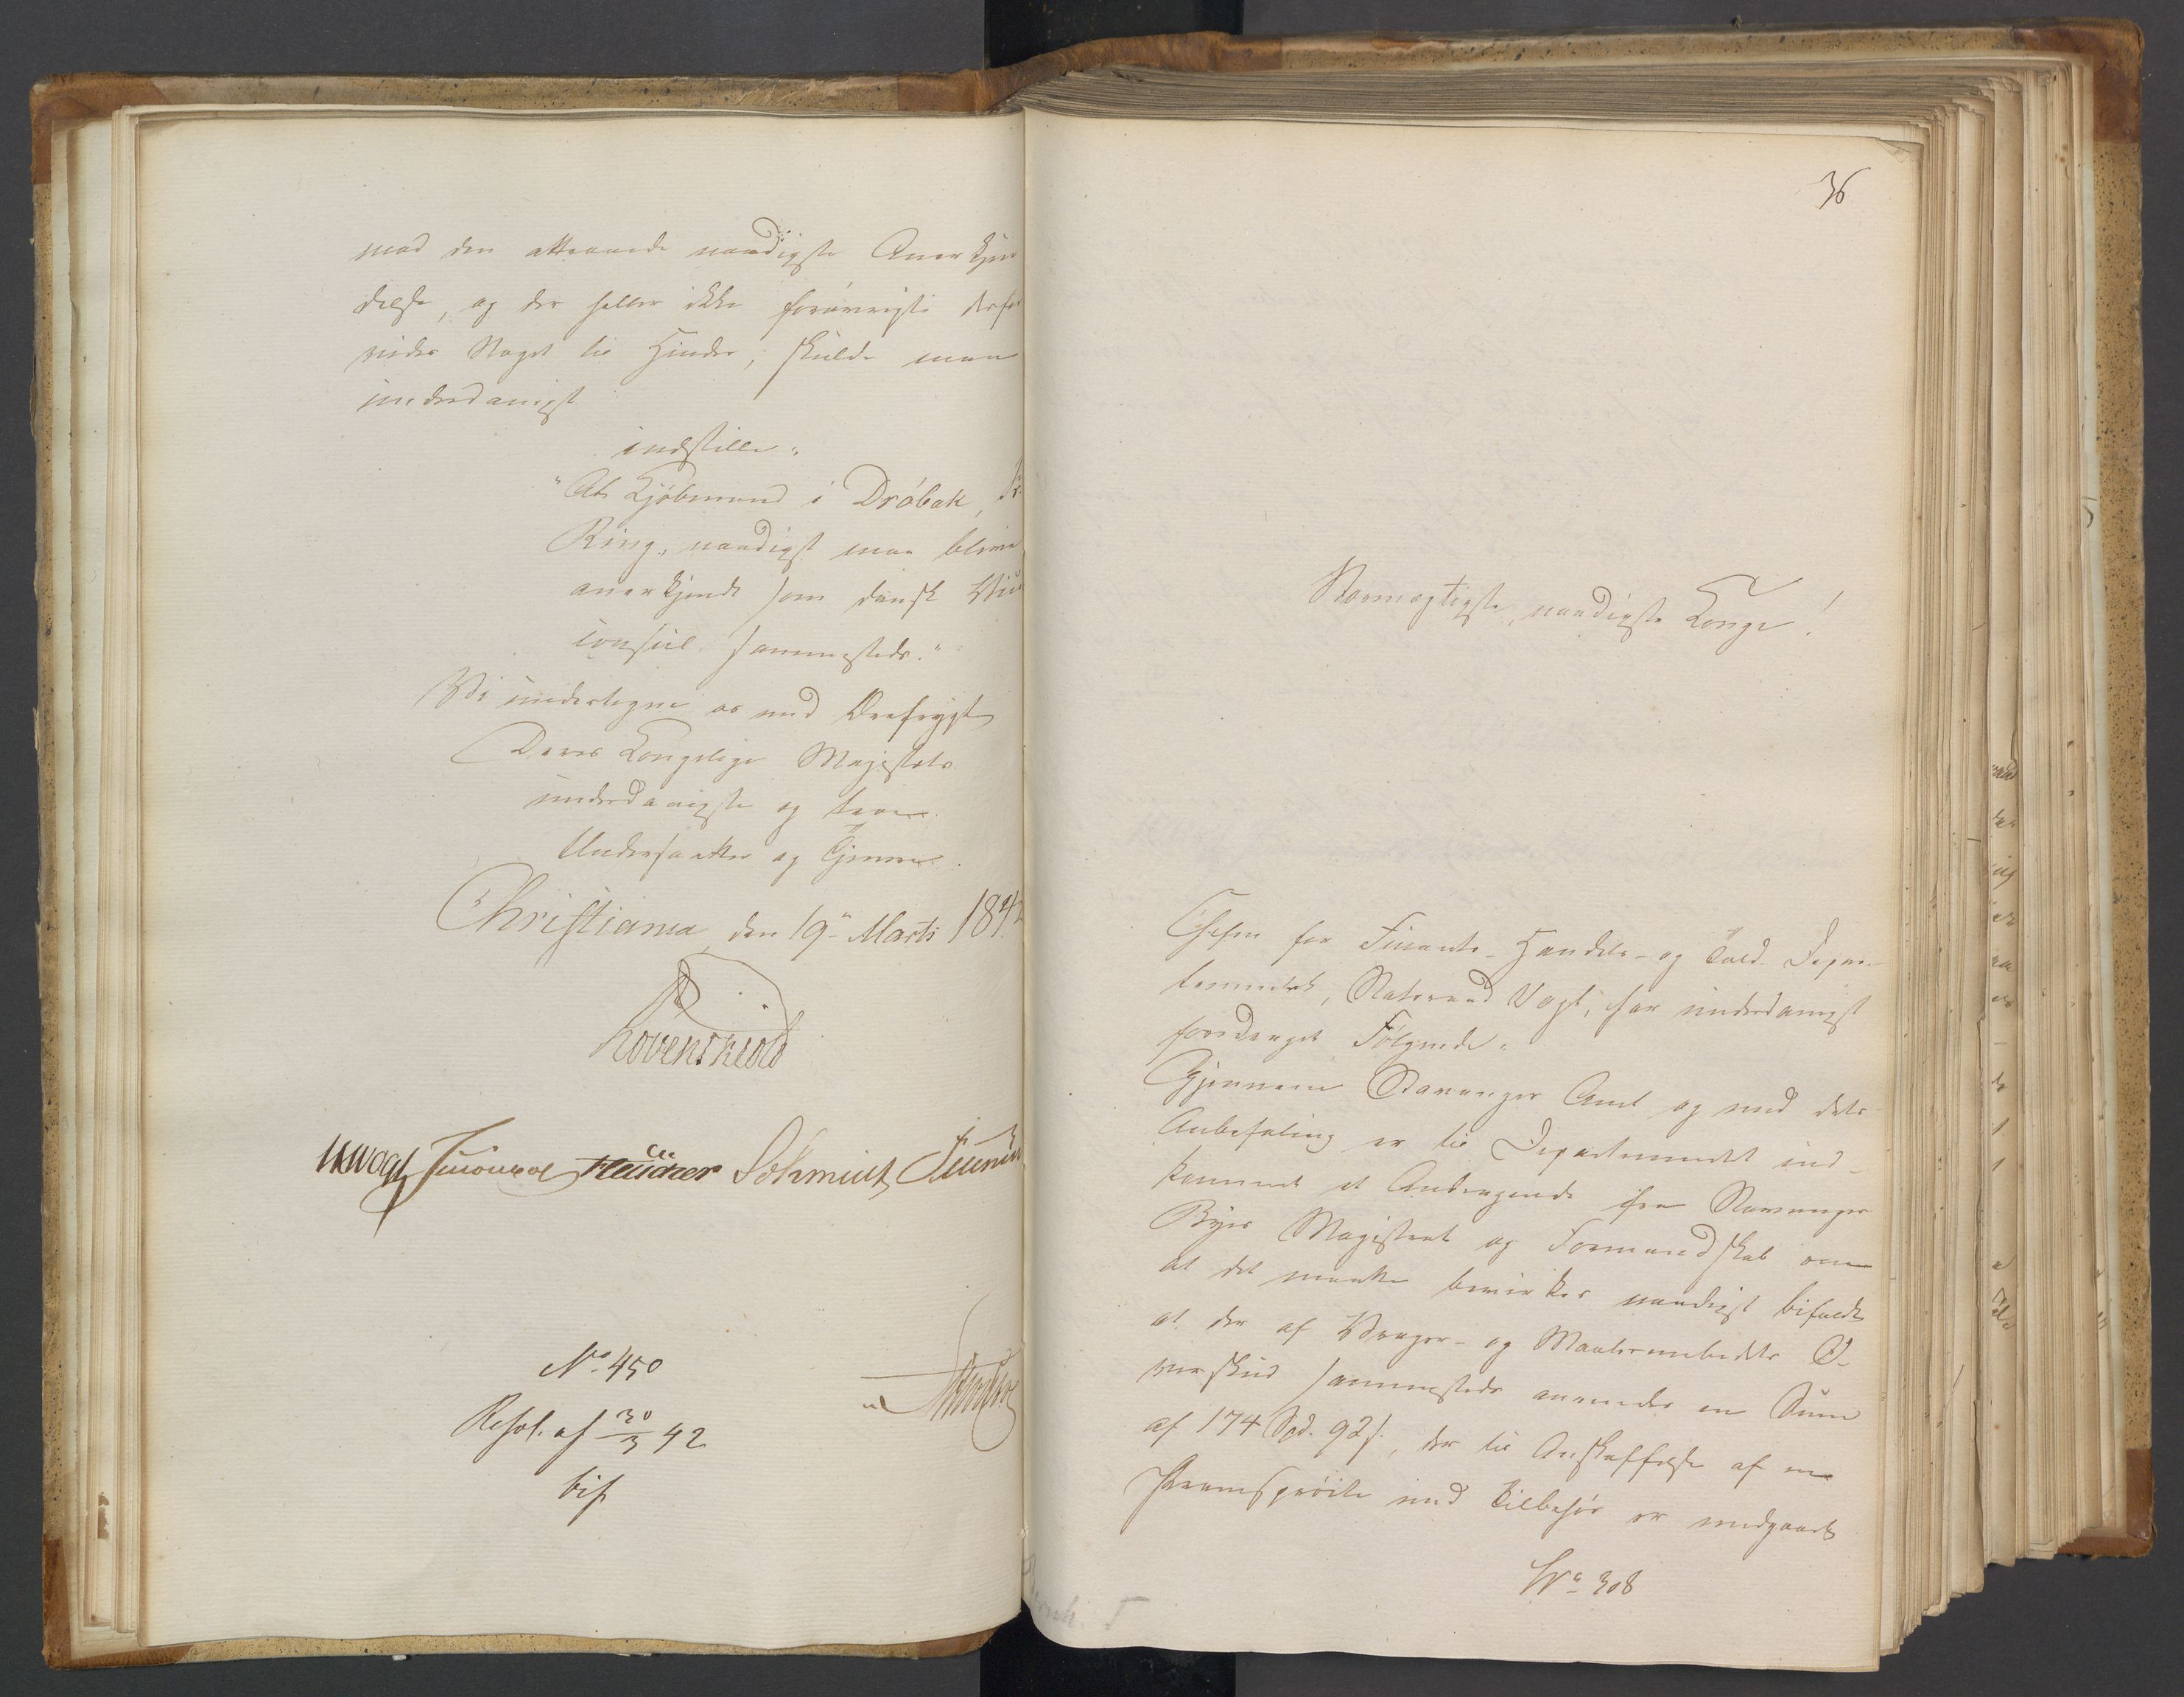 mod den attraaede naadigste Anerkjen
delse, og der heller ikke forøvrigt derfor
vides Noget til Hinder, skulde man
underdanigst
indstille:
"At Kjøbmand i Drøbak,
Ring, naadigst maa blive
anerkjendt som dansk Vice
consul sammesteds."
Vi undertegne os med Ærefrygt
Deres Kongelige Majestæts
underdanigste og troe
Undersaatter og Tjenere.
Christiania, den 19de Marts 1842
Løvenskiold
Vogt Heidner Schmidt
No. 450
Resol. af 30/3 42
bif.
36
Stormægtigste, naadigste Konge!
Chefen for Finants- Handels- og Told-Depar-
tementet, Statsraad Vogt, har underdanigst
foredraget Følgende:
Gjennem Stavanger Amt og med dets
Anbefaling er til Departementet ind-
kommet et Andragende fra Stavanger
Byes Magistrat og Formandskab om
at det maatte bevirkes naadigst bifaldt
at der af Veager- og Maalerembedets O-
verskud sammesteds anvendes en Sum
af 174 Spd. 92 s., der til Anskaffelse af en
Pramsprøite med Tilbehør er medgaaet
No 308